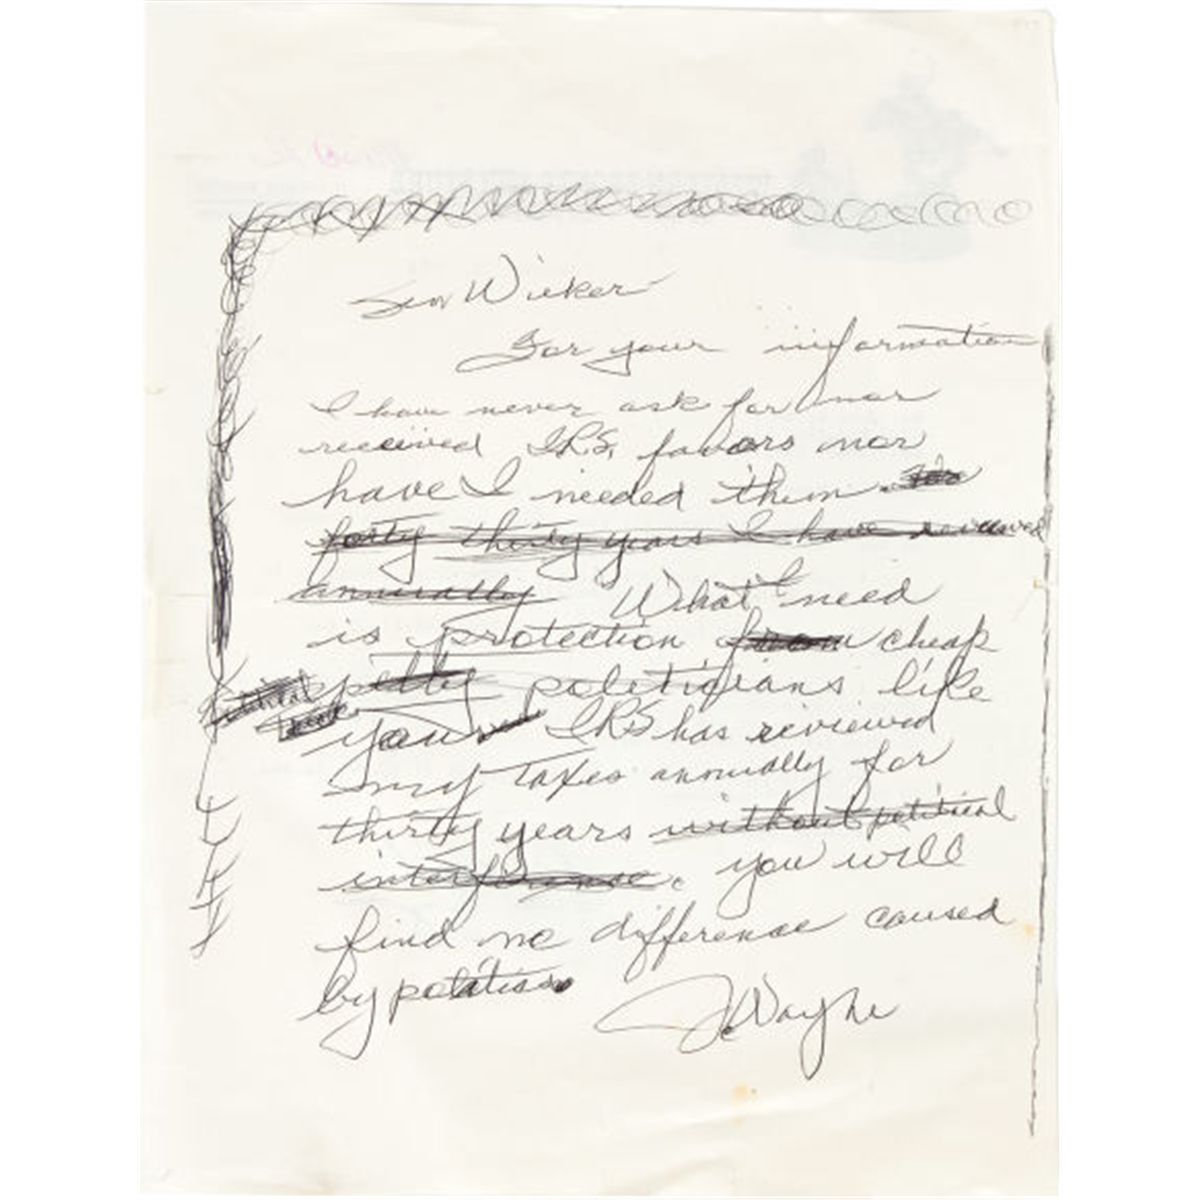 Sen Wicker
For your information
I have never ask for nor
received I.R.S. favors nor
have I needed them.
forty thirty years I have reviewed
annually What I need
is protection from cheap
petty politicians like
you IRS has reviewed
my taxes annually for
thirty years without political
interference. you will
find no difference caused
by politics
J. Wayne